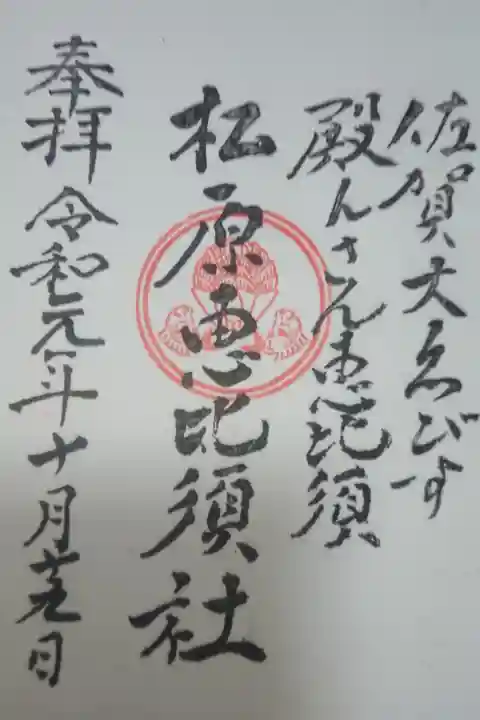 佐賀大ゑびす
殿んさん恵比須
松原恵比須社
奉拝 令和元年十月廿九日